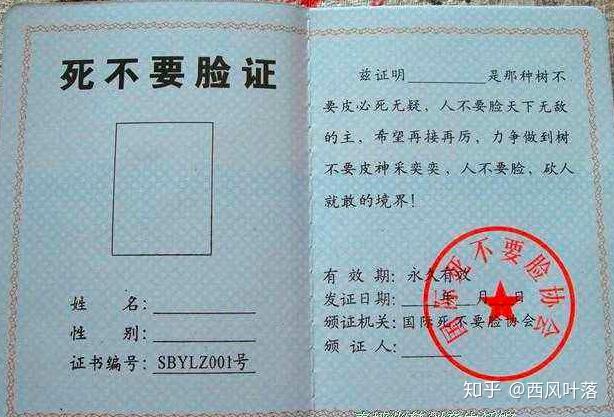 死不要脸证
姓 名:
性 别:
证书编号: SBYLZ001号
兹证明________是那种树不
要皮必死无疑，人不要脸天下无敌
的主，希望再接再厉，力争做到树
不要皮神采奕奕，人不要脸，砍人
就敢的境界！
有 效 期: 永久有效
发证日期: 年 月 日
颁证机关: 国际死不要脸协会
颁 证 人:
国际死不要脸协会
知乎 @西风叶落